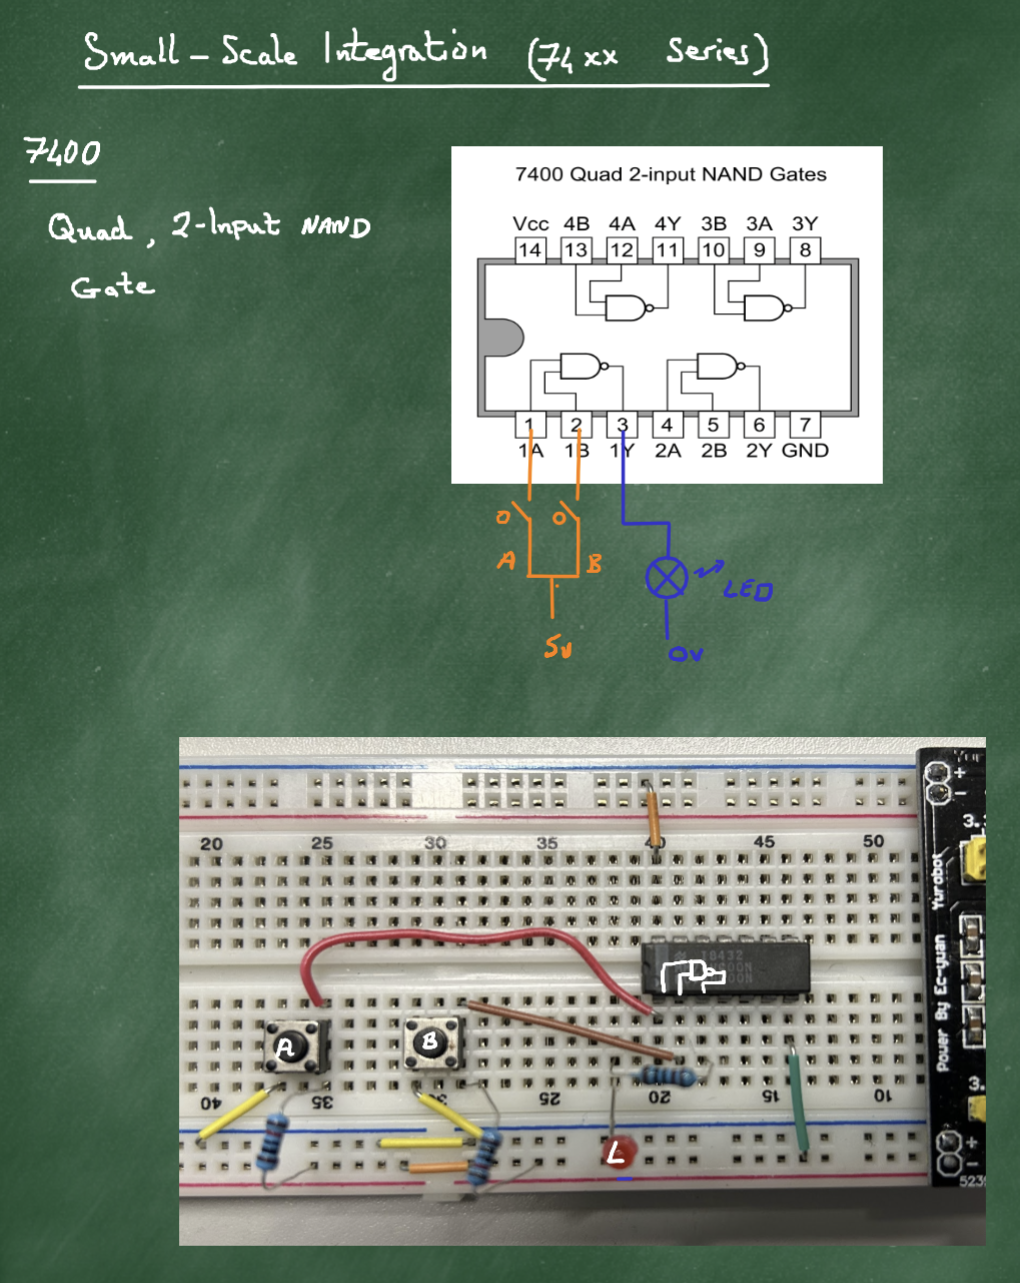 Small-Scale Integration (74xx Series)
7400
Quad, 2-Input NAND
Gate
7400 Quad 2-input NAND Gates
Vcc 4B 4A 4Y 3B 3A 3Y
14 13 12 11 10 9 8
1 2 3 4 5 6 7
1A 1B 1Y 2A 2B 2Y GND
A B
5v
LED
0v
+
-
3.
20 25 30 35 40 45 50
Yurobot
Power By Ec-yuan
A
B
40 35 30 25 20 15 10
L
3.
+
-